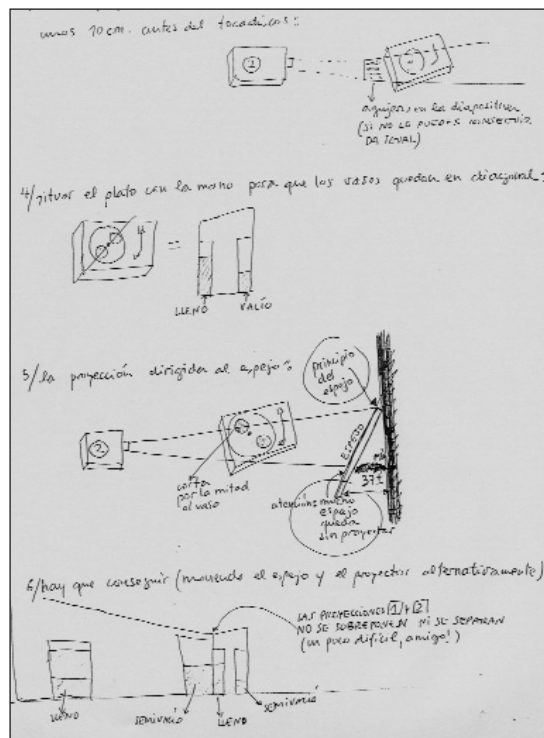 unos 10 cm. antes del tocadiscos:
2
agujero en la diapositiva
(SI NO LO PUEDES CONSEGUIR
DA IGUAL)
4/ situar el plato con la mano para que los vasos queden en diagonal:
=
LLENO
VACÍO
5/ la proyección dirigida al espejo:
principio
del
espejo
2
ESPEJO
corta
por la mitad
al vaso
37
atención: mucho
espejo
queda
sin proyectar
6/ hay que conseguir (moviendo el espejo y el proyector alternativamente)
LAS PROYECCIONES 1 y 2
NO SE SOBREPONEN NI SE SEPARAN
(un poco difícil, amigo!)
LLENO
SEMIVACIÓ
LLENO
SEMIVACIÓ